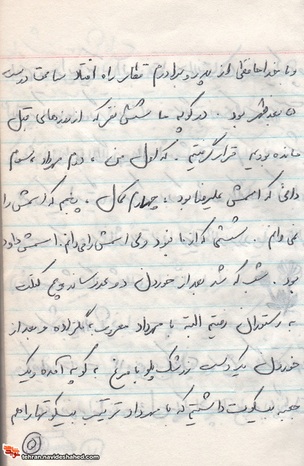 و با خداحافظی از پدر و برادرم قطار راه افتاد ساعت درست
۵ بعدظهر بود. در کوپه ما شش نفر که از بچه‌های قبل
مانده بودیم قرار گرفتیم. که اول من، دوم مهرداد، سوم
دامی که اسمش علیرضا بود، چهارم کمال. پنجم که اسمش را
نمی‌دانم. ششمی که از ما نبود ولی اسمش را می‌دانم. اسمش داود
بود. شب که شد بعد از خوردن دو عدد ساندویچ کتلت
به رستوران رفتیم البته با مهرداد معروف، گلزاده و بعد از
خوردن یکدست زرشک پلو با مرغ، به کوپه آمده و یک
جعبه بیسکویت داشتیم که با مهرداد ترتیب بیسکوئیتها را هم
۵
tehran.navideshahed.com